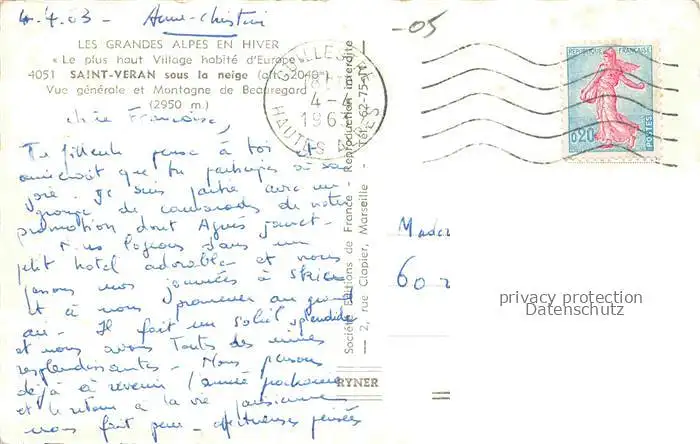 4.4.63 - Anne-Christine
-05
LES GRANDES ALPES EN HIVER
« Le plus haut Village habité d'Europe »
4051 SAINT-VERAN sous la neige (alt. 2040m)
Vue générale et Montagne de Beauregard
(2950 m.)
4-4
196
HAUTES ALPES
REPUBLIQUE FRANÇAISE
0,20
POSTES
chère Françoise,
Ta filleule pense à toi et
aimerait que tu participes à sa
joie. Je suis partie avec un
groupe de camarades de notre
promotion dont Agnès
Nous logeons dans un
petit hotel adorable et nous
passons nos journées à skier
et à nous promener au grand
air. Il fait un soleil splendide
et nous avons toutes des mines
resplendissantes - Nous pensons
déjà à revenir l'année prochaine
et le retour à la vie parisienne
nous fait peur - affectueuses pensées
Société Editions de France Reproduction interdite
- 2, rue Clapier, Marseille - Tél. 62-75
RYNER
Mader
60 r
privacy protection
Datenschutz